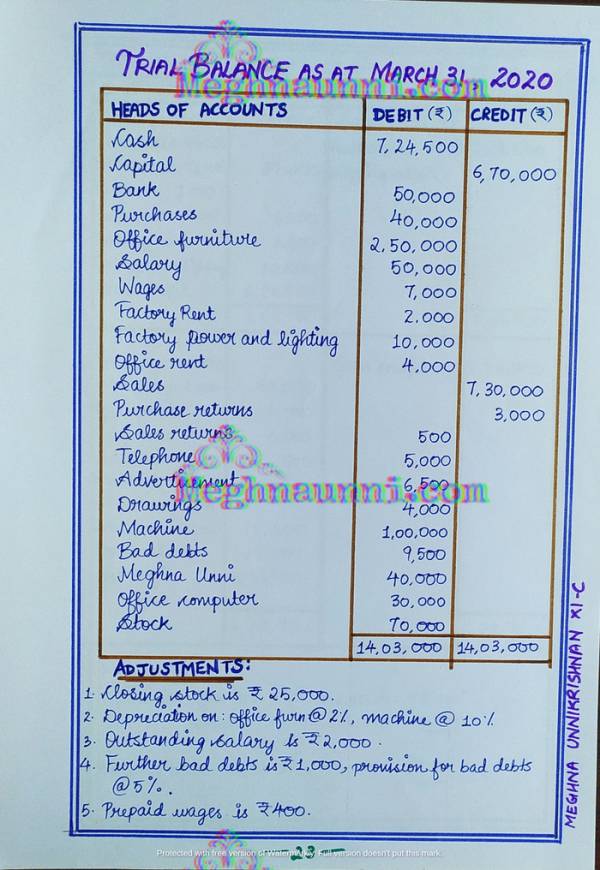 TRIAL BALANCE AS AT MARCH 31, 2020
Meghnaunni.com
HEADS OF ACCOUNTS DEBIT (₹) CREDIT (₹)
Cash 7,24,500
Capital 6,70,000
Bank 50,000
Purchases 40,000
Office furniture 2,50,000
Salary 50,000
Wages 7,000
Factory Rent 2.000
Factory power and lighting 10,000
Office rent 4,000
Sales 7,30,000
Purchase returns 3,000
Sales returns 500
Telephone 5,000
Advertisement 6,500
Meghnaunni.com
Drawings 4,000
Machine 1,00,000
Bad debts 9,500
Meghna Unni 40,000
Office computer 30,000
Stock 70,000
14,03,000 14,03,000
ADJUSTMENTS:
1. Closing stock is ₹ 25,000.
2. Depreciation on: office furn @ 2%, machine @ 10%
3. Outstanding salary is ₹ 2,000.
4. Further bad debts is ₹ 1,000, provision for bad debts
@ 5%.
5. Prepaid wages is ₹400.
MEGHNA UNNIKRISHNAN XI-C
-23-
Protected with free version of Watermarkly. Full version doesn't put this mark.